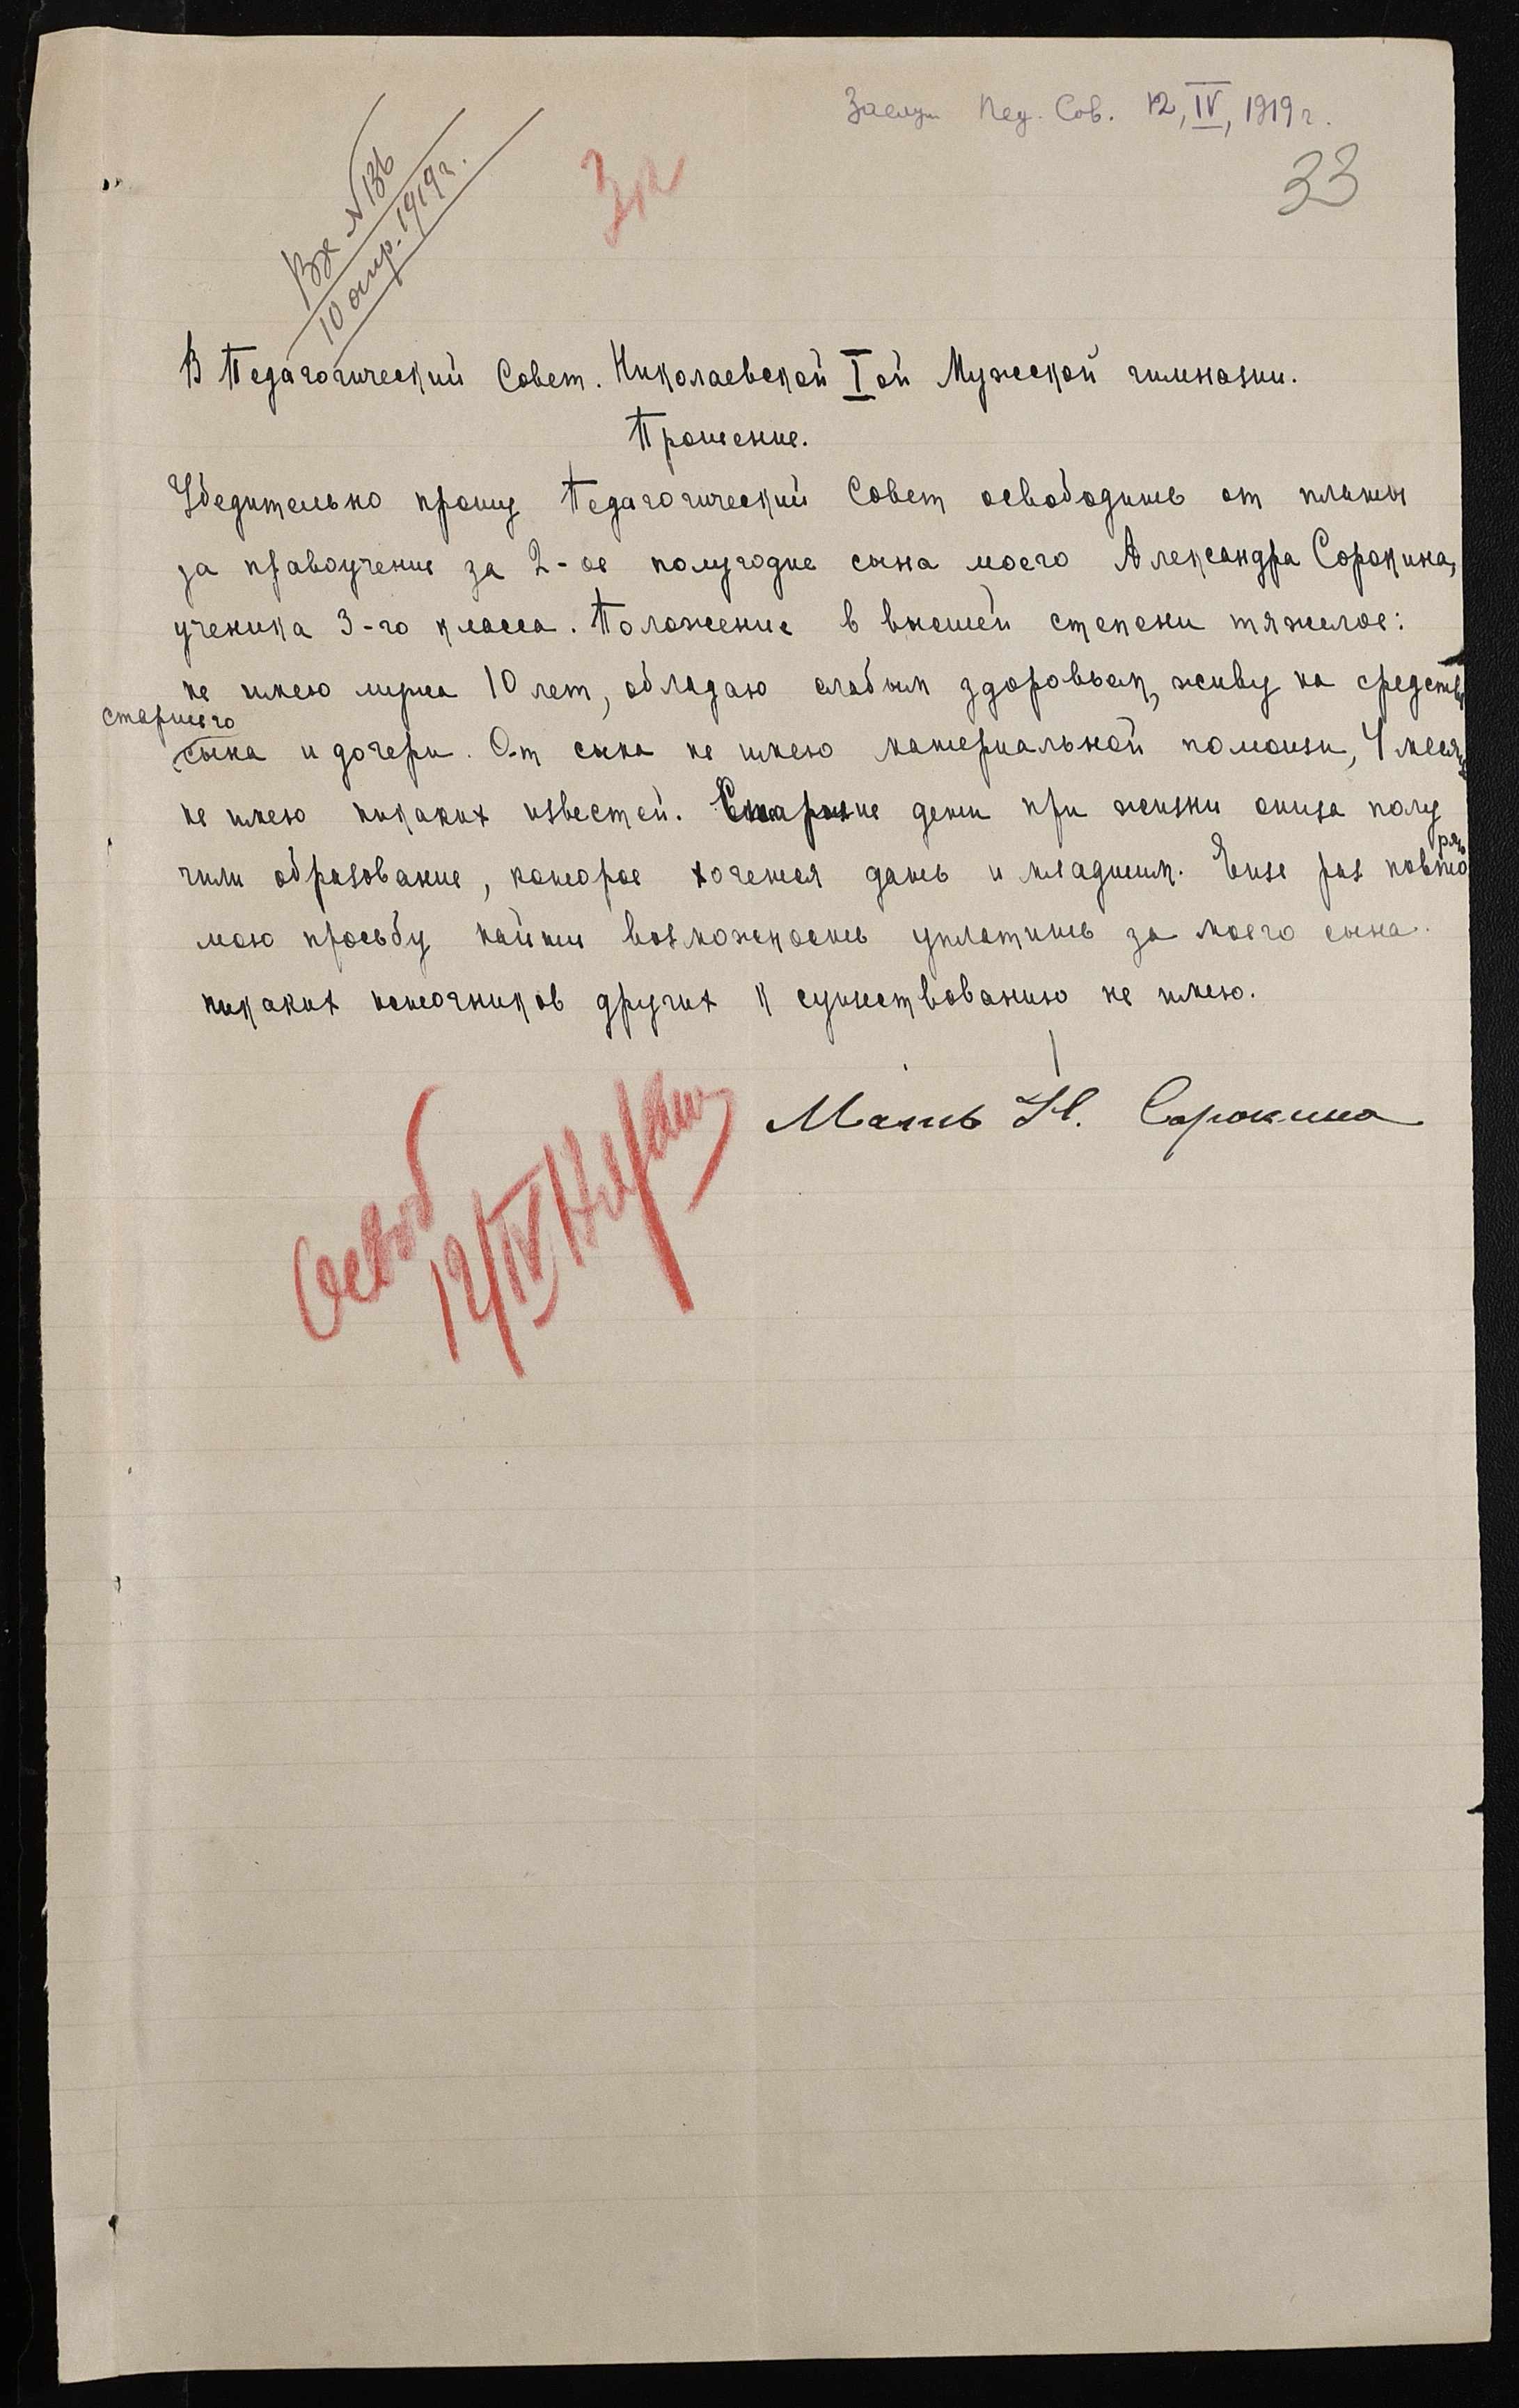 Заслуш Пед. Сов. 12, IV, 1919 г.
33
Вх N 136
10 апр. 1919 г.
В Педагогический Совет. Николаевской I ой Мужской гимназии.
Прошение.
Убедительно прошу Педагогический Совет освободить от платы
за правоучение за 2-ое полугодие сына моего Александра Сорокина,
ученика 3-го класса. Положение в высшей степени тяжелое:
не имею мужа 10 лет, обладаю слабым здоровьем, живу на средства
старшего
сына и дочери. От сына не имею материальной помощи, 4 месяца
не имею никаких известей. Старшие дети при жизни отца полу
чили образование, которое хочется дать и младшим. Еще раз повторяю
мою просьбу найти возможность уплатить за моего сына.
никаких источников других к существованию не имею.
Мать Н. Сорокина
Освоб
12/IV